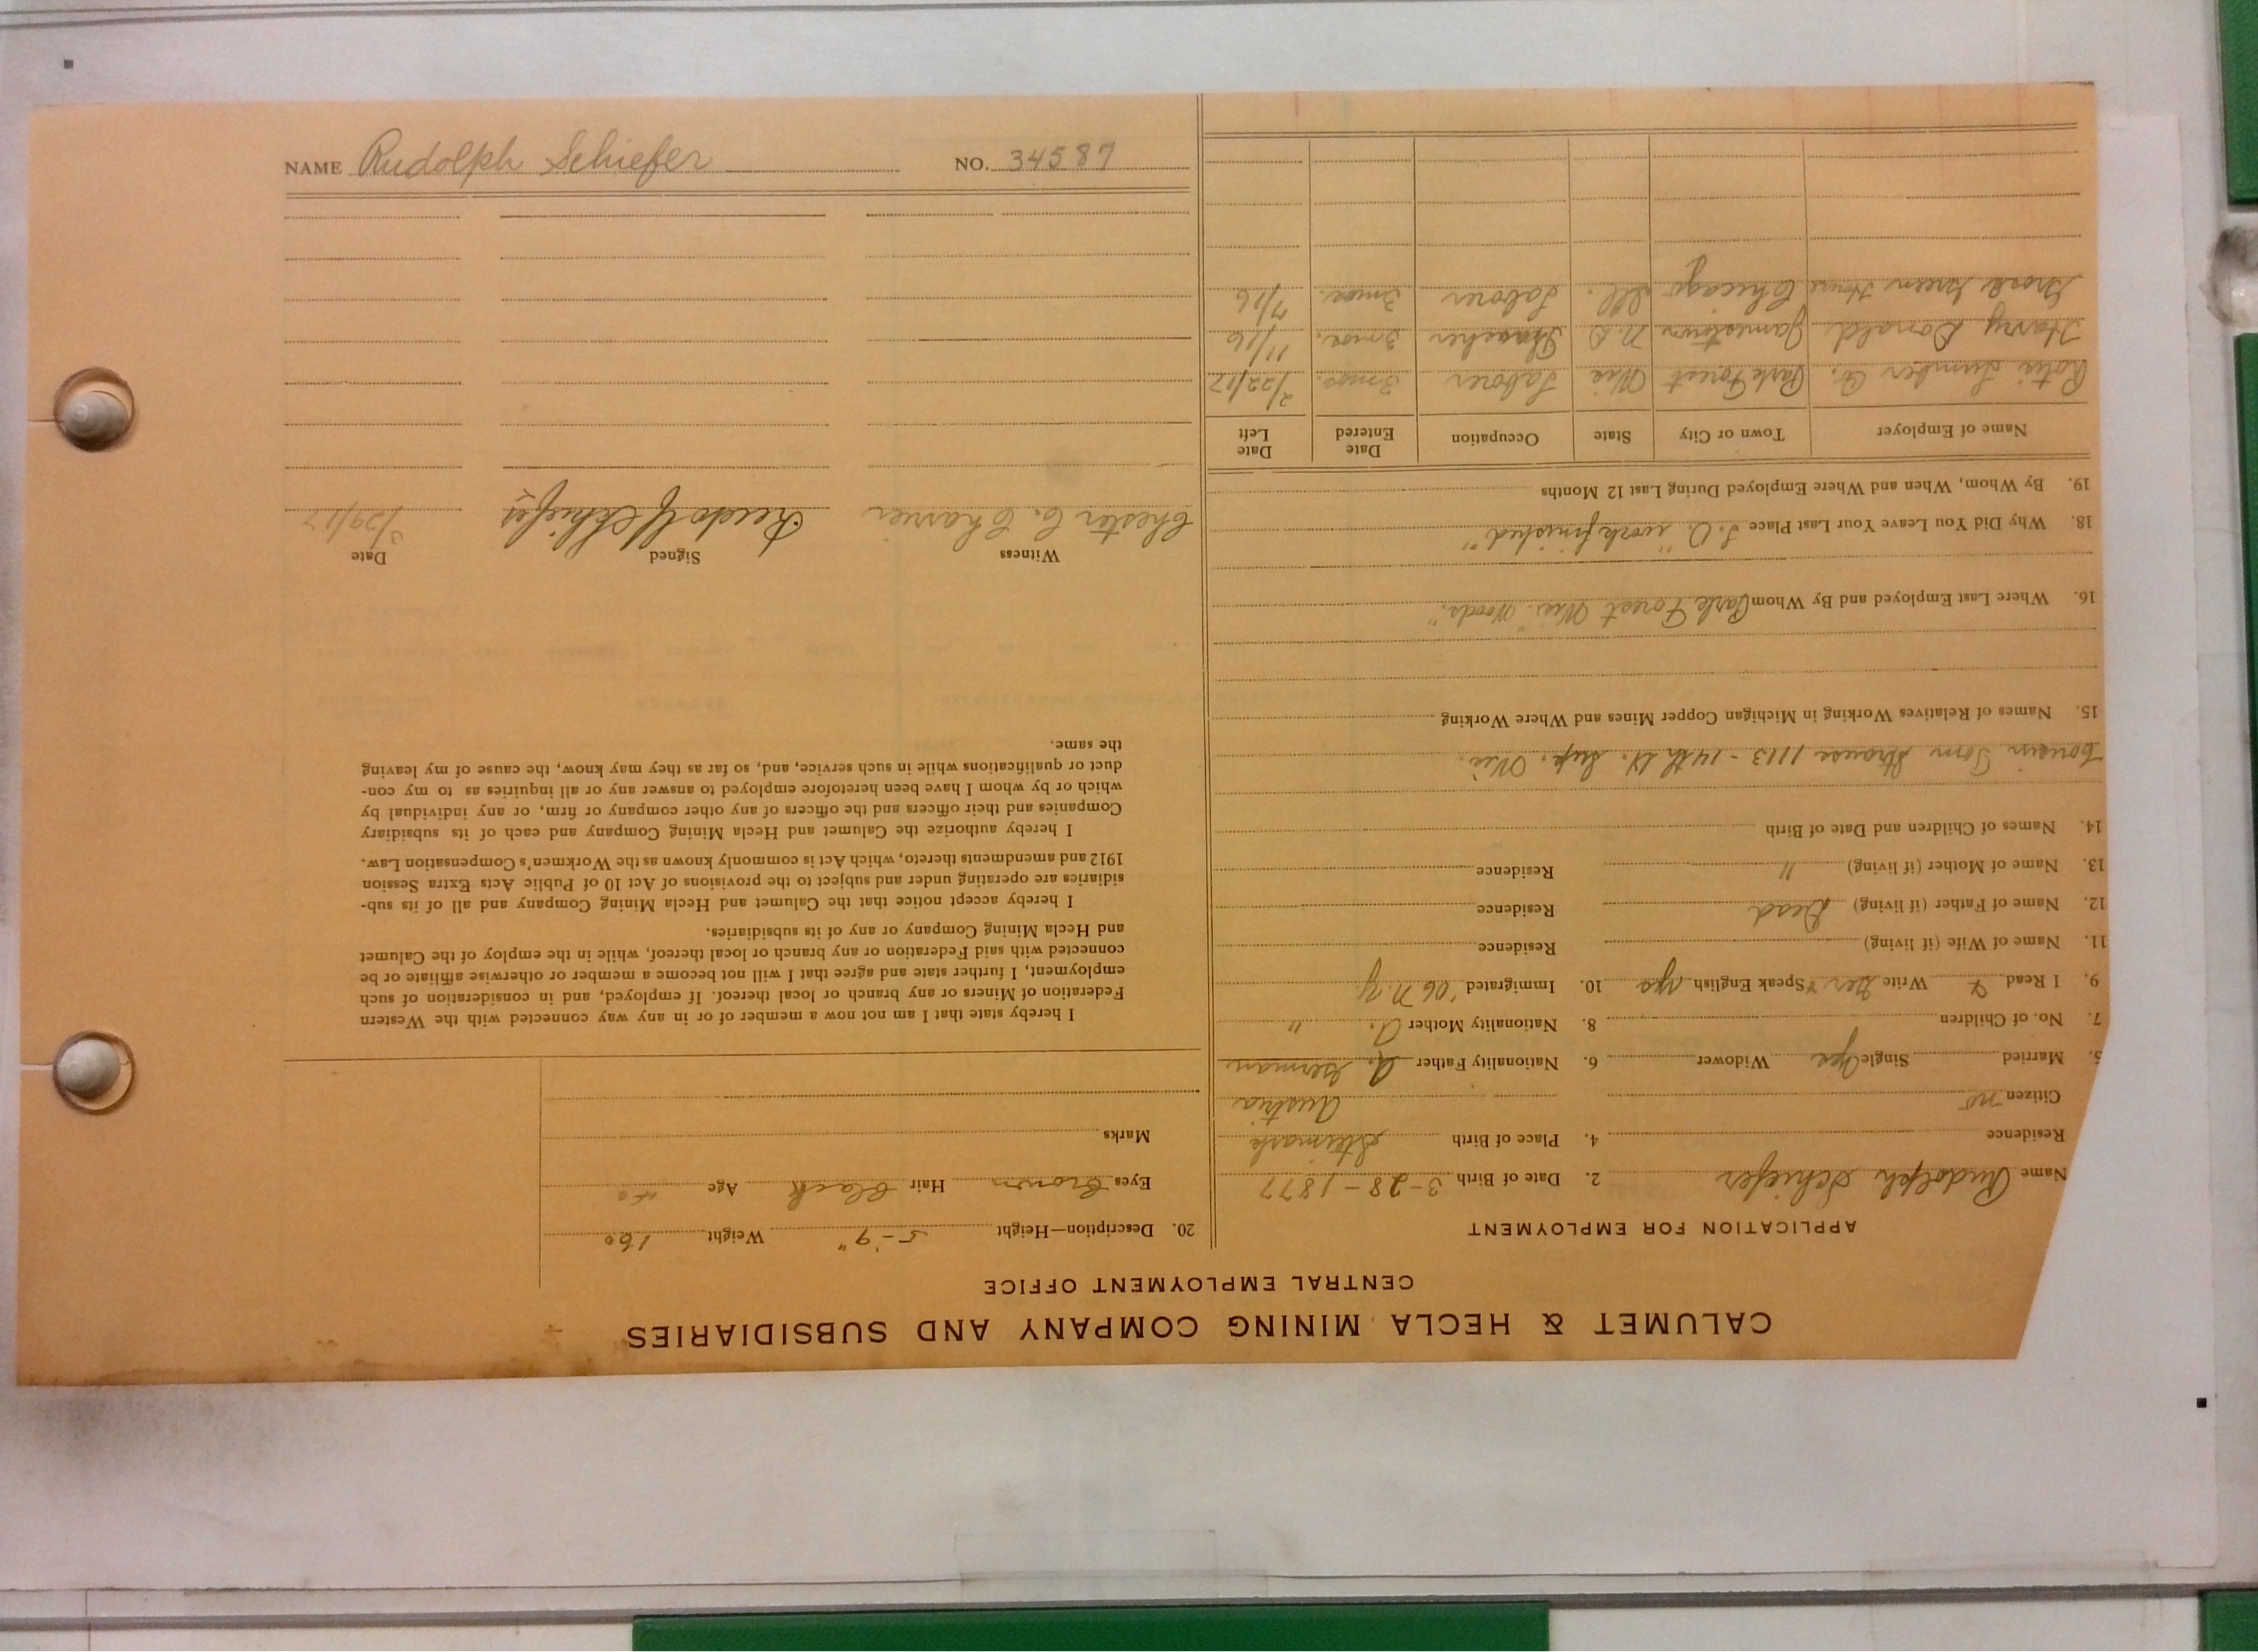 CALUMET & HECLA MINING COMPANY AND SUBSIDIARIES
CENTRAL EMPLOYMENT OFFICE
APPLICATION FOR EMPLOYMENT
Name Rudolph Schiefer 2. Date of Birth 3-28-1877
Residence 4. Place of Birth Steimark
Citizen no Austria
5. Married Single Yes Widower 6. Nationality Father A. German
7. No. of Children 8. Nationality Mother A. "
9. I Read & Write Ger & Speak English yes 10. Immigrated '06 N.Y.
11. Name of Wife (if living) Residence
12. Name of Father (if living) Dead Residence
13. Name of Mother (if living) " Residence
14. Names of Children and Date of Birth
Cousin Tom Strauss 1113-14th St. Sup. Wis.
15. Names of Relatives Working in Michigan Copper Mines and Where Working
16. Where Last Employed and By Whom Park Forest Wis. "Woods."
18. Why Did You Leave Your Last Place "work finished"
19. By Whom, When and Where Employed During Last 12 Months
Name of Employer Town or City State Occupation Date Entered Date Left
Lumber Co. Park Forest Wis Laborer 3 mos. 2/22/17
Harry Donald Jamestown N.D Thrasher 3 mos. 11/16
Green House Chicago Ill. Laborer 3 mos. 7/16
20. Description—Height 5-9" Weight 160
Eyes Brown Hair Black Age 40
Marks
I hereby state that I am not now a member of or in any way connected with the Western
Federation of Miners or any branch or local thereof. If employed, and in consideration of such
employment, I further state and agree that I will not become a member or otherwise affiliate or be
connected with said Federation or any branch or local thereof, while in the employ of the Calumet
and Hecla Mining Company or any of its subsidiaries.
I hereby accept notice that the Calumet and Hecla Mining Company and all of its sub-
sidiaries are operating under and subject to the provisions of Act 10 of Public Acts Extra Session
1912 and amendments thereto, which Act is commonly known as the Workmen's Compensation Law.
I hereby authorize the Calumet and Hecla Mining Company and each of its subsidiary
Companies and their officers and the officers of any other company or firm, or any individual by
which or by whom I have been heretofore employed to answer any or all inquiries as to my con-
duct or qualifications while in such service, and, so far as they may know, the cause of my leaving
the same.
Witness Signed Date
Chester C. Rudolf Schiefer 3/29/17
NAME Rudolph Schiefer NO. 34587